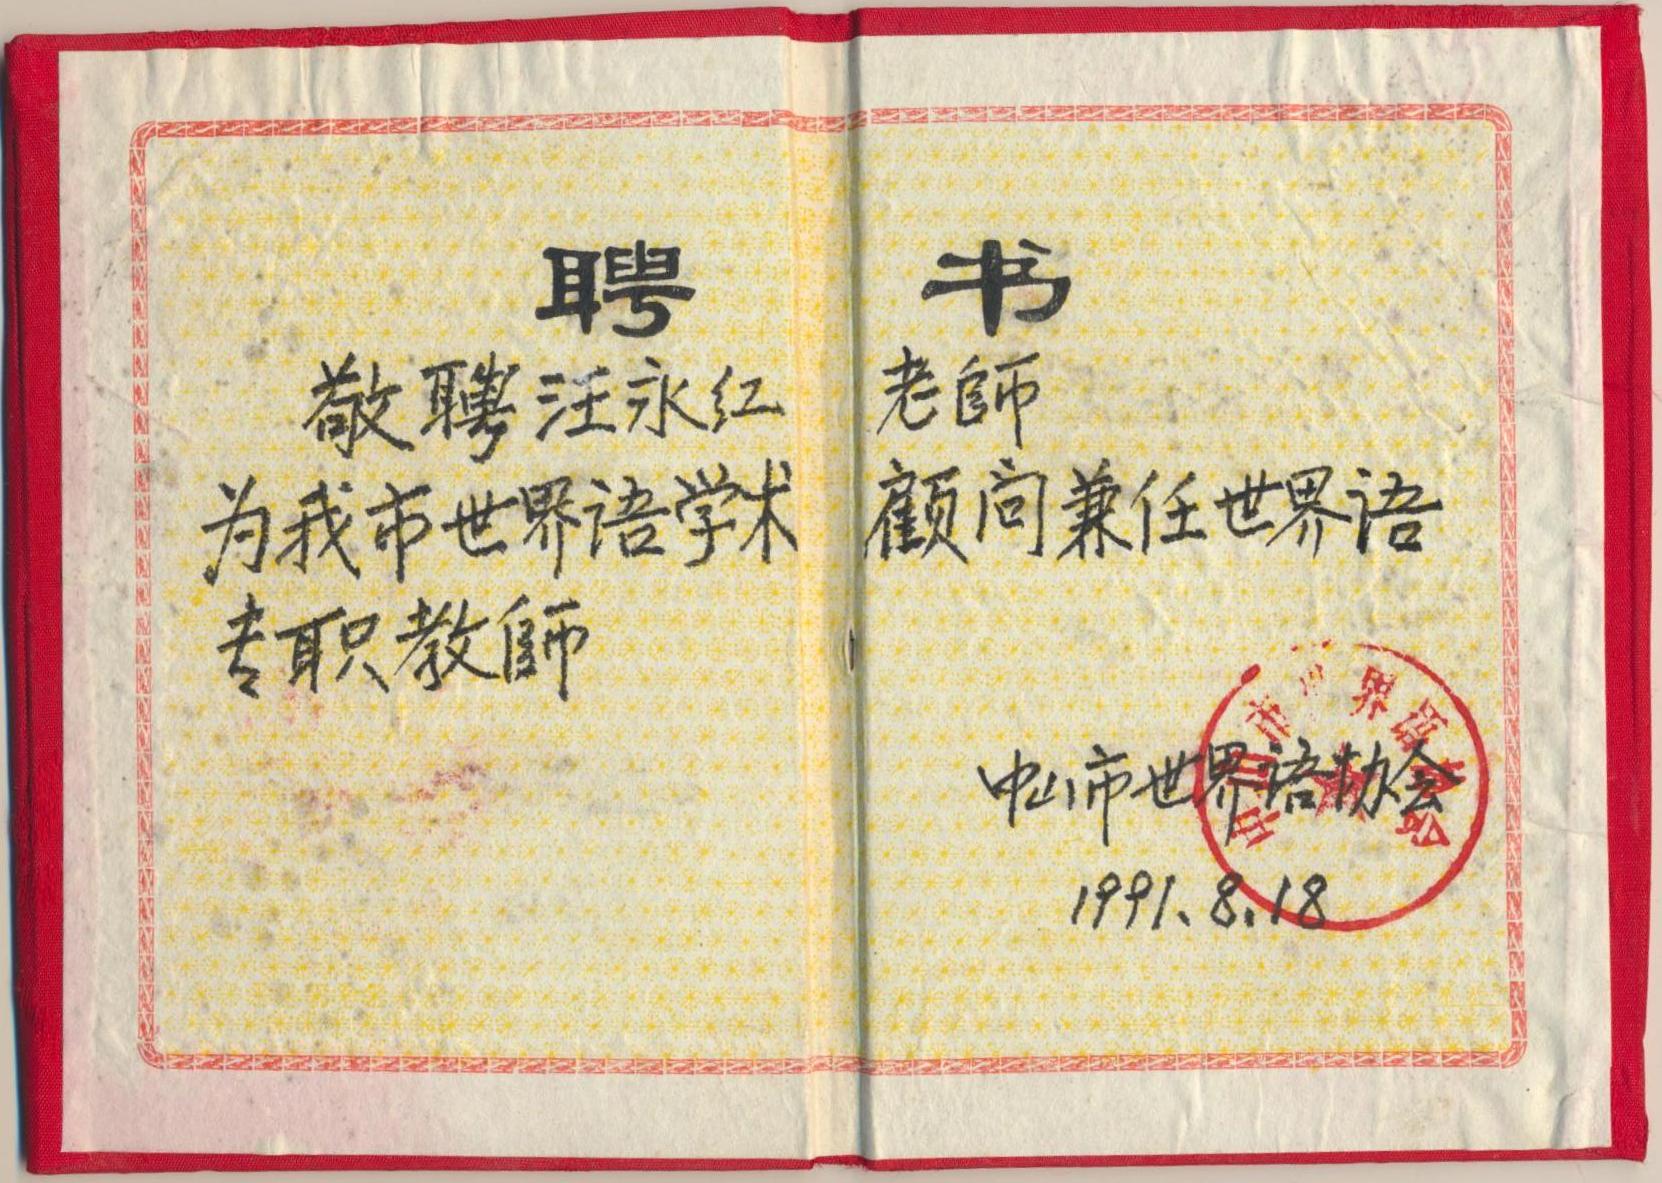 聘书
敬聘汪永红老師
为我市世界语学术顾问兼任世界语
专职教師
中山市世界语协会
1991.8.18
中山市世界语协会